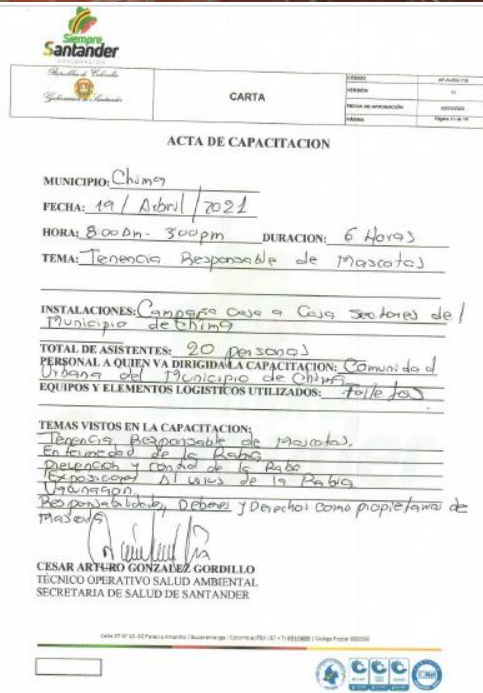 Siempre
Santander
República de Colombia
Gobernación de Santander
CARTA
CÓDIGO
VERSIÓN
FECHA DE APROBACIÓN
PÁGINA
ACTA DE CAPACITACION
MUNICIPIO: Chima
FECHA: 19 / Arbril / 2021
HORA: 8:00 Am - 3:00 pm DURACION: 6 Horas
TEMA: Tenencia Responsable de Mascotas
INSTALACIONES: Campaña Casa a Casa Sectores del
Municipio de Chima
TOTAL DE ASISTENTES: 20 personas
PERSONAL A QUIEN VA DIRIGIDA LA CAPACITACION: Comunidad
Urbana del Municipio de Chima
EQUIPOS Y ELEMENTOS LOGISTICOS UTILIZADOS: folletos
TEMAS VISTOS EN LA CAPACITACION:
Tenencia Responsable de Mascotas,
Enfermedad de la Rabia
Prevencion y control de la Rabia
Exposiciones Al virus de la Rabia
Vacunacion,
Responsabilidades, Deberes y Derechos como propietarios de
Mascotas
CESAR ARTURO GONZALEZ GORDILLO
TÉCNICO OPERATIVO SALUD AMBIENTAL
SECRETARIA DE SALUD DE SANTANDER